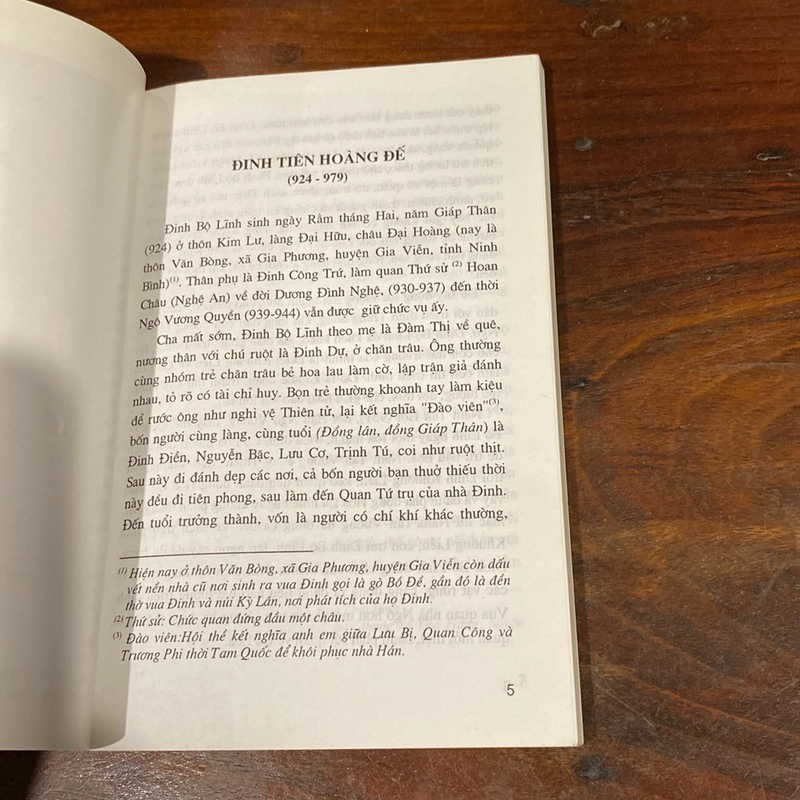 ĐINH TIÊN HOÀNG ĐẾ
(924 - 979)
Đinh Bộ Lĩnh sinh ngày Rằm tháng Hai, năm Giáp Thân
(924) ở thôn Kim Lư, làng Đại Hữu, châu Đại Hoàng (nay là
thôn Văn Bòng, xã Gia Phương, huyện Gia Viễn, tỉnh Ninh
Bình)(1). Thân phụ là Đinh Công Trứ, làm quan Thứ sử (2) Hoan
Châu (Nghệ An) về đời Dương Đình Nghệ, (930-937) đến thời
Ngô Vương Quyền (939-944) vẫn được giữ chức vụ ấy.
Cha mất sớm, Đinh Bộ Lĩnh theo mẹ là Đàm Thị về quê,
nương thân với chú ruột là Đinh Dự, ở chăn trâu. Ông thường
cùng nhóm trẻ chăn trâu bẻ hoa lau làm cờ, lập trận giả đánh
nhau, tỏ rõ có tài chỉ huy. Bọn trẻ thường khoanh tay làm kiệu
để rước ông như nghi vệ Thiên tử, lại kết nghĩa "Đào viên"(3),
bốn người cùng làng, cùng tuổi (Đồng lân, đồng Giáp Thân) là
Đinh Điền, Nguyễn Bặc, Lưu Cơ, Trịnh Tú, coi như ruột thịt.
Sau này đi đánh dẹp các nơi, cả bốn người bạn thuở thiếu thời
này đều đi tiên phong, sau làm đến Quan Tứ trụ của nhà Đinh.
Đến tuổi trưởng thành, vốn là người có chí khí khác thường,
(1) Hiện nay ở thôn Văn Bòng, xã Gia Phương, huyện Gia Viễn còn dấu
vết nền nhà cũ nơi sinh ra vua Đinh gọi là gò Bồ Đề, gần đó là đền
thờ vua Đinh và núi Kỳ Lân, nơi phát tích của họ Đinh.
(2) Thứ sử: Chức quan đứng đầu một châu.
(3) Đào viên:Hội thề kết nghĩa anh em giữa Lưu Bị, Quan Công và
Trương Phi thời Tam Quốc để khôi phục nhà Hán.
5